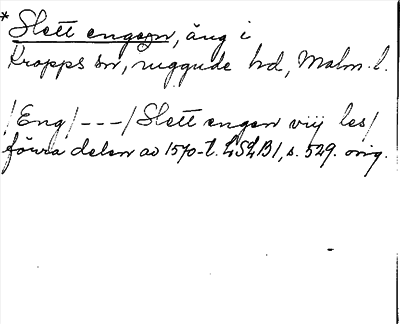 * Slett engen, äng i
Kropps sn, Luggude hd, Malm. l.
/Eng/ - - - / Slett engen viij les /
förra delen av 1570-t. LSLB1, s. 529. orig.